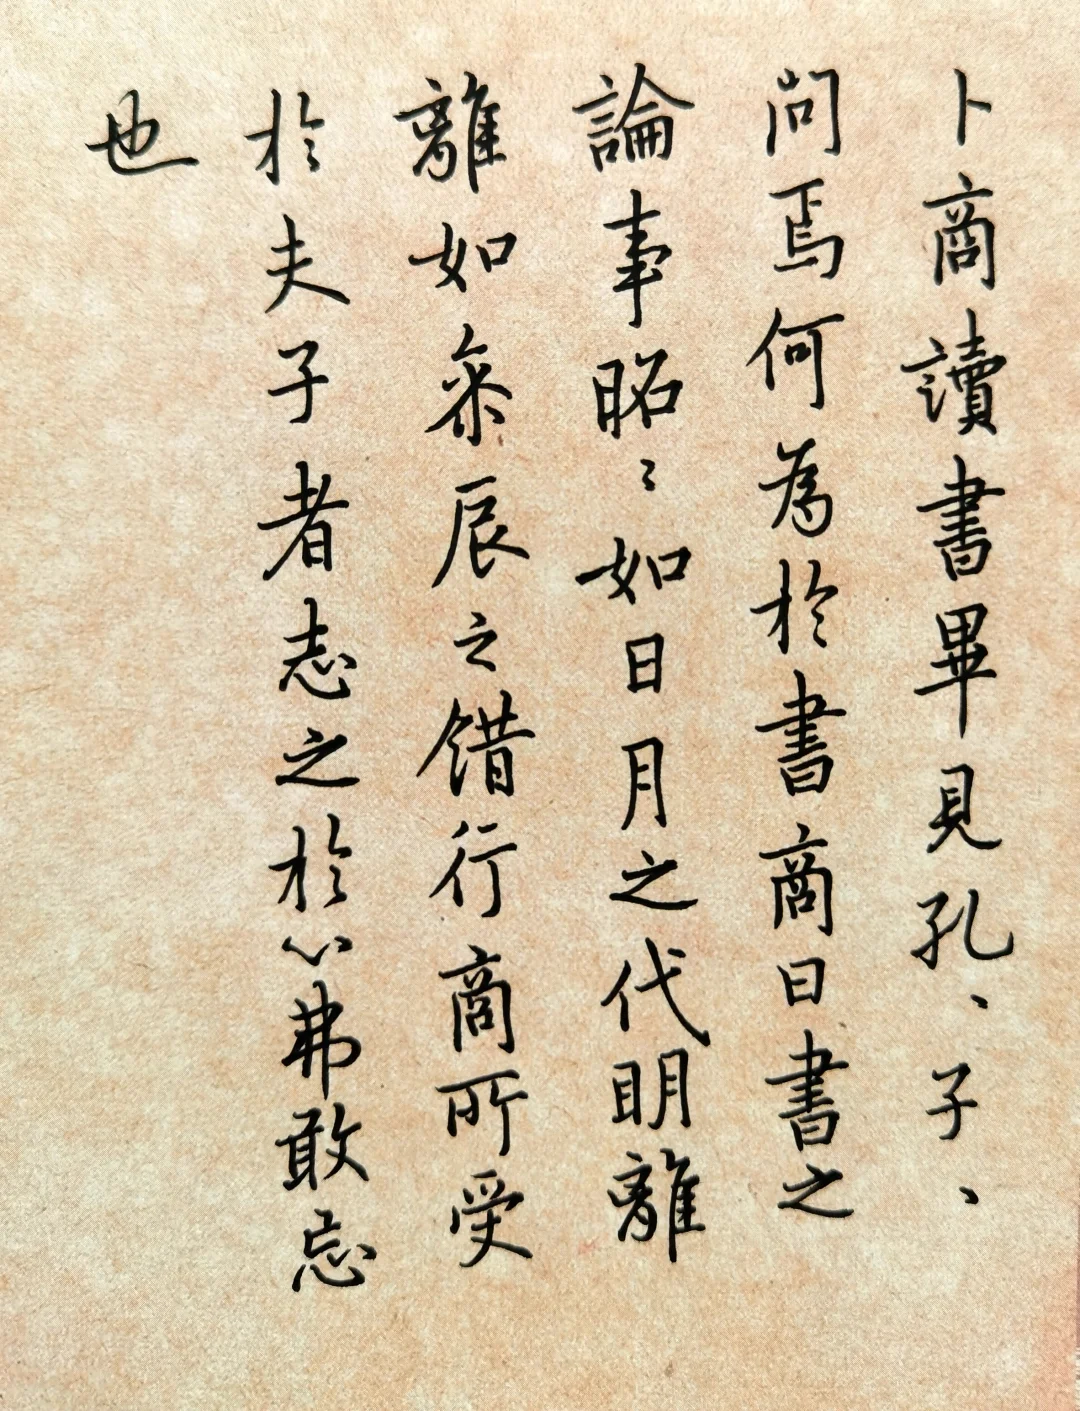 卜商讀書畢見孔、子、
问焉何為於書商曰書之
論事昭〻如日月之代明離
離如參辰之錯行商所受
於夫子者志之於心弗敢忘
也